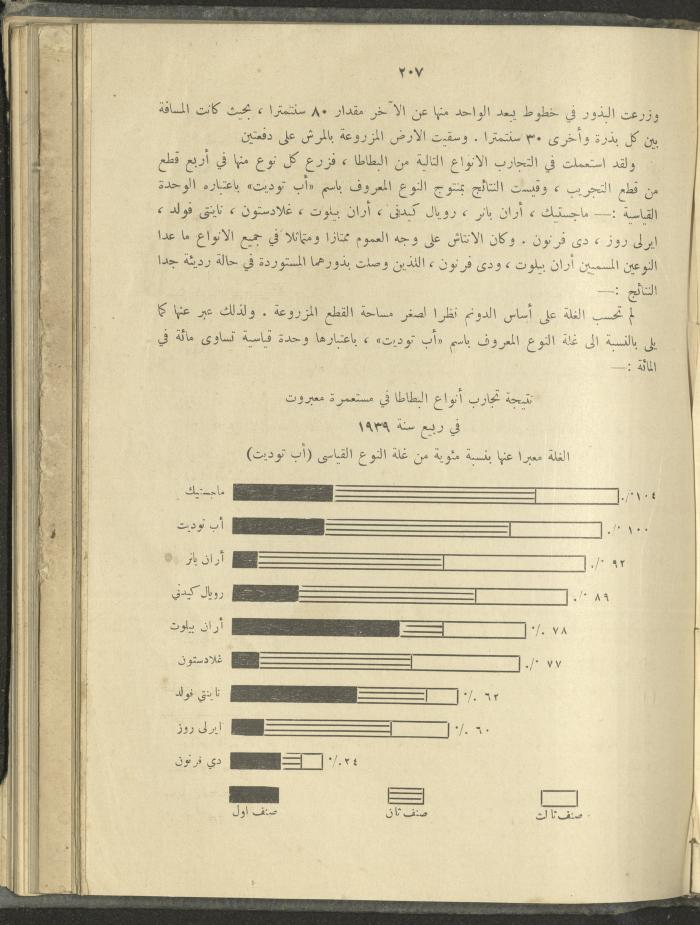 ٢٠٧
وزرعت البذور في خطوط يبعد الواحد منها عن الآخر مقدار ٨٠ سنتمترا ، بحيث كانت المسافة
بين كل بذرة وأخرى ٣٠ سنتمترا . وسقيت الارض المزروعة بالمرش على دفعتين
ولقد استعملت في التجارب الانواع التالية من البطاطا ، فزرع كل نوع منها في أربع قطع
من قطع التجريب ، وقيست النتائج بمنتوج النوع المعروف باسم «أب توديت» باعتباره الوحدة
القياسية :— ماجستيك ، أران بانر ، رويال كيدنى ، أران بيلوت ، غلادستون ، ناينتى فولد ،
ايرلى روز ، دى فرنون . وكان الانتاش على وجه العموم ممتازا ومتماثلا في جميع الانواع ما عدا
النوعين المسميين أران بيلوت ، ودى فرنون ، اللذين وصلت بذورهما المستوردة في حالة رديئة جدا
النتائج :—
لم تحسب الغلة على أساس الدونم نظرا لصغر مساحة القطع المزروعة . ولذلك عبر عنها كما
يلى بالنسبة الى غلة النوع المعروف باسم «أب توديت» ، باعتبارها وحدة قياسية تساوى مائة في
المائة :—
نتيجة تجارب أنواع البطاطا في مستعمرة معبروت
في ربيع سنة ١٩٣٩
الغلة معبرا عنها بنسبة مئوية من غلة النوع القياسى (أب توديت)
ماجستيك ١٠٤ ٪
أب توديت ١٠٠ ٪
أران بانر ٩٢ ٪
رويال كيدني ٨٩ ٪
أران بيلوت ٧٨ ٪
غلادستون ٧٧ ٪
ناينتي فولد ٦٢ ٪
ايرلى روز ٦٠ ٪
دي فرنون ٢٤ ٪
صنف اول صنف ثان صنف ثالث